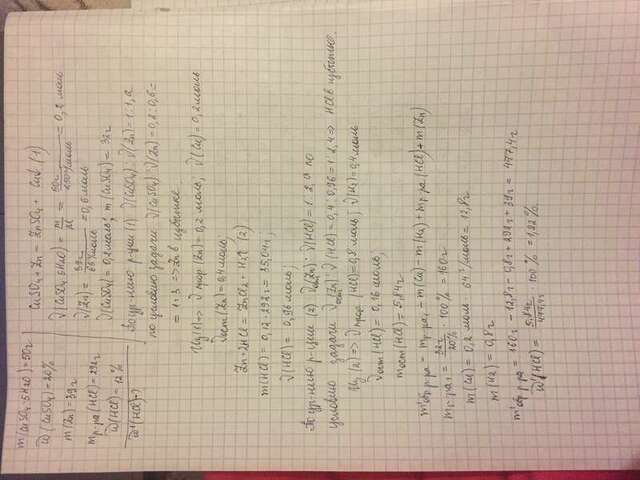 m(CuSO₄·5H₂O)=50г
ω(CuSO₄)=20%
m(Zn)=39г
mр-ра(HCl)=292г
ω(HCl)=12%
ω'(HCl)-?
CuSO₄+Zn=ZnSO₄+Cu↓ (1)
ν(CuSO₄·5H₂O)=m/M=50г/250г/моль=0,2 моль
ν(Zn)=39г/65г/моль=0,6моль
ν(CuSO₄)=0,2моль; m(CuSO₄)=32г
По ур-нию р-ции (1) ν(CuSO₄):ν(Zn)=1:1, а
по условию задачи ν(CuSO₄):ν(Zn)=0,2:0,6=
=1:3 ⇒ Zn в избытке
Из(1)⇒ νпрор.(Zn)=0,2моль; ν(Cu)=0,2моль
νост(Zn)=0,4моль;
Zn+2HCl=ZnCl₂+H₂↑ (2)
m(HCl)=0,12·292г=35,04г;
ν(HCl)=0,96моль;
По ур-нию р-ции (2) νост(Zn):ν(HCl)=1:2, а по
условию задачи νост(Zn):ν(HCl)=0,4:0,96=1:2,4⇒ HCl в избытке
Из (2)⇒ νпрор.(HCl)=0,8моль; ν(H₂)=0,4моль
νост(HCl)=0,16моль;
mост(HCl)=5,84г
m'обр.р-ра=mр-ра₁-m(Cu)-m(H₂)+mр-ра(HCl)+m(Zn)
mр-ра₁=32г/20%·100%=160г
m(Cu)=0,2моль·64г/моль=12,8г
m(H₂)=0,8г
m'обр.р-ра=160г-12,8г-0,8г+292г+39г=477,4г
ω'(HCl)=5,84г/477,4г·100%=1,22%